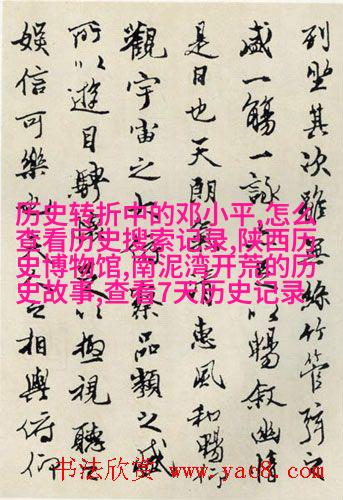 列坐其次雖無絲竹管弦之
盛一觴一詠亦足以暢敘幽情
是日也天朗氣清惠風和暢仰
觀宇宙之大俯察品類之盛
所以遊目騁懷足以極視聽之
娛信可樂也夫人之相與俯仰
历史转折中的邓小平,怎么
查看历史搜索记录,陕西历
史博物馆,南泥湾开荒的历
史故事,查看7天历史记录
书法欣赏 www.yac8.com